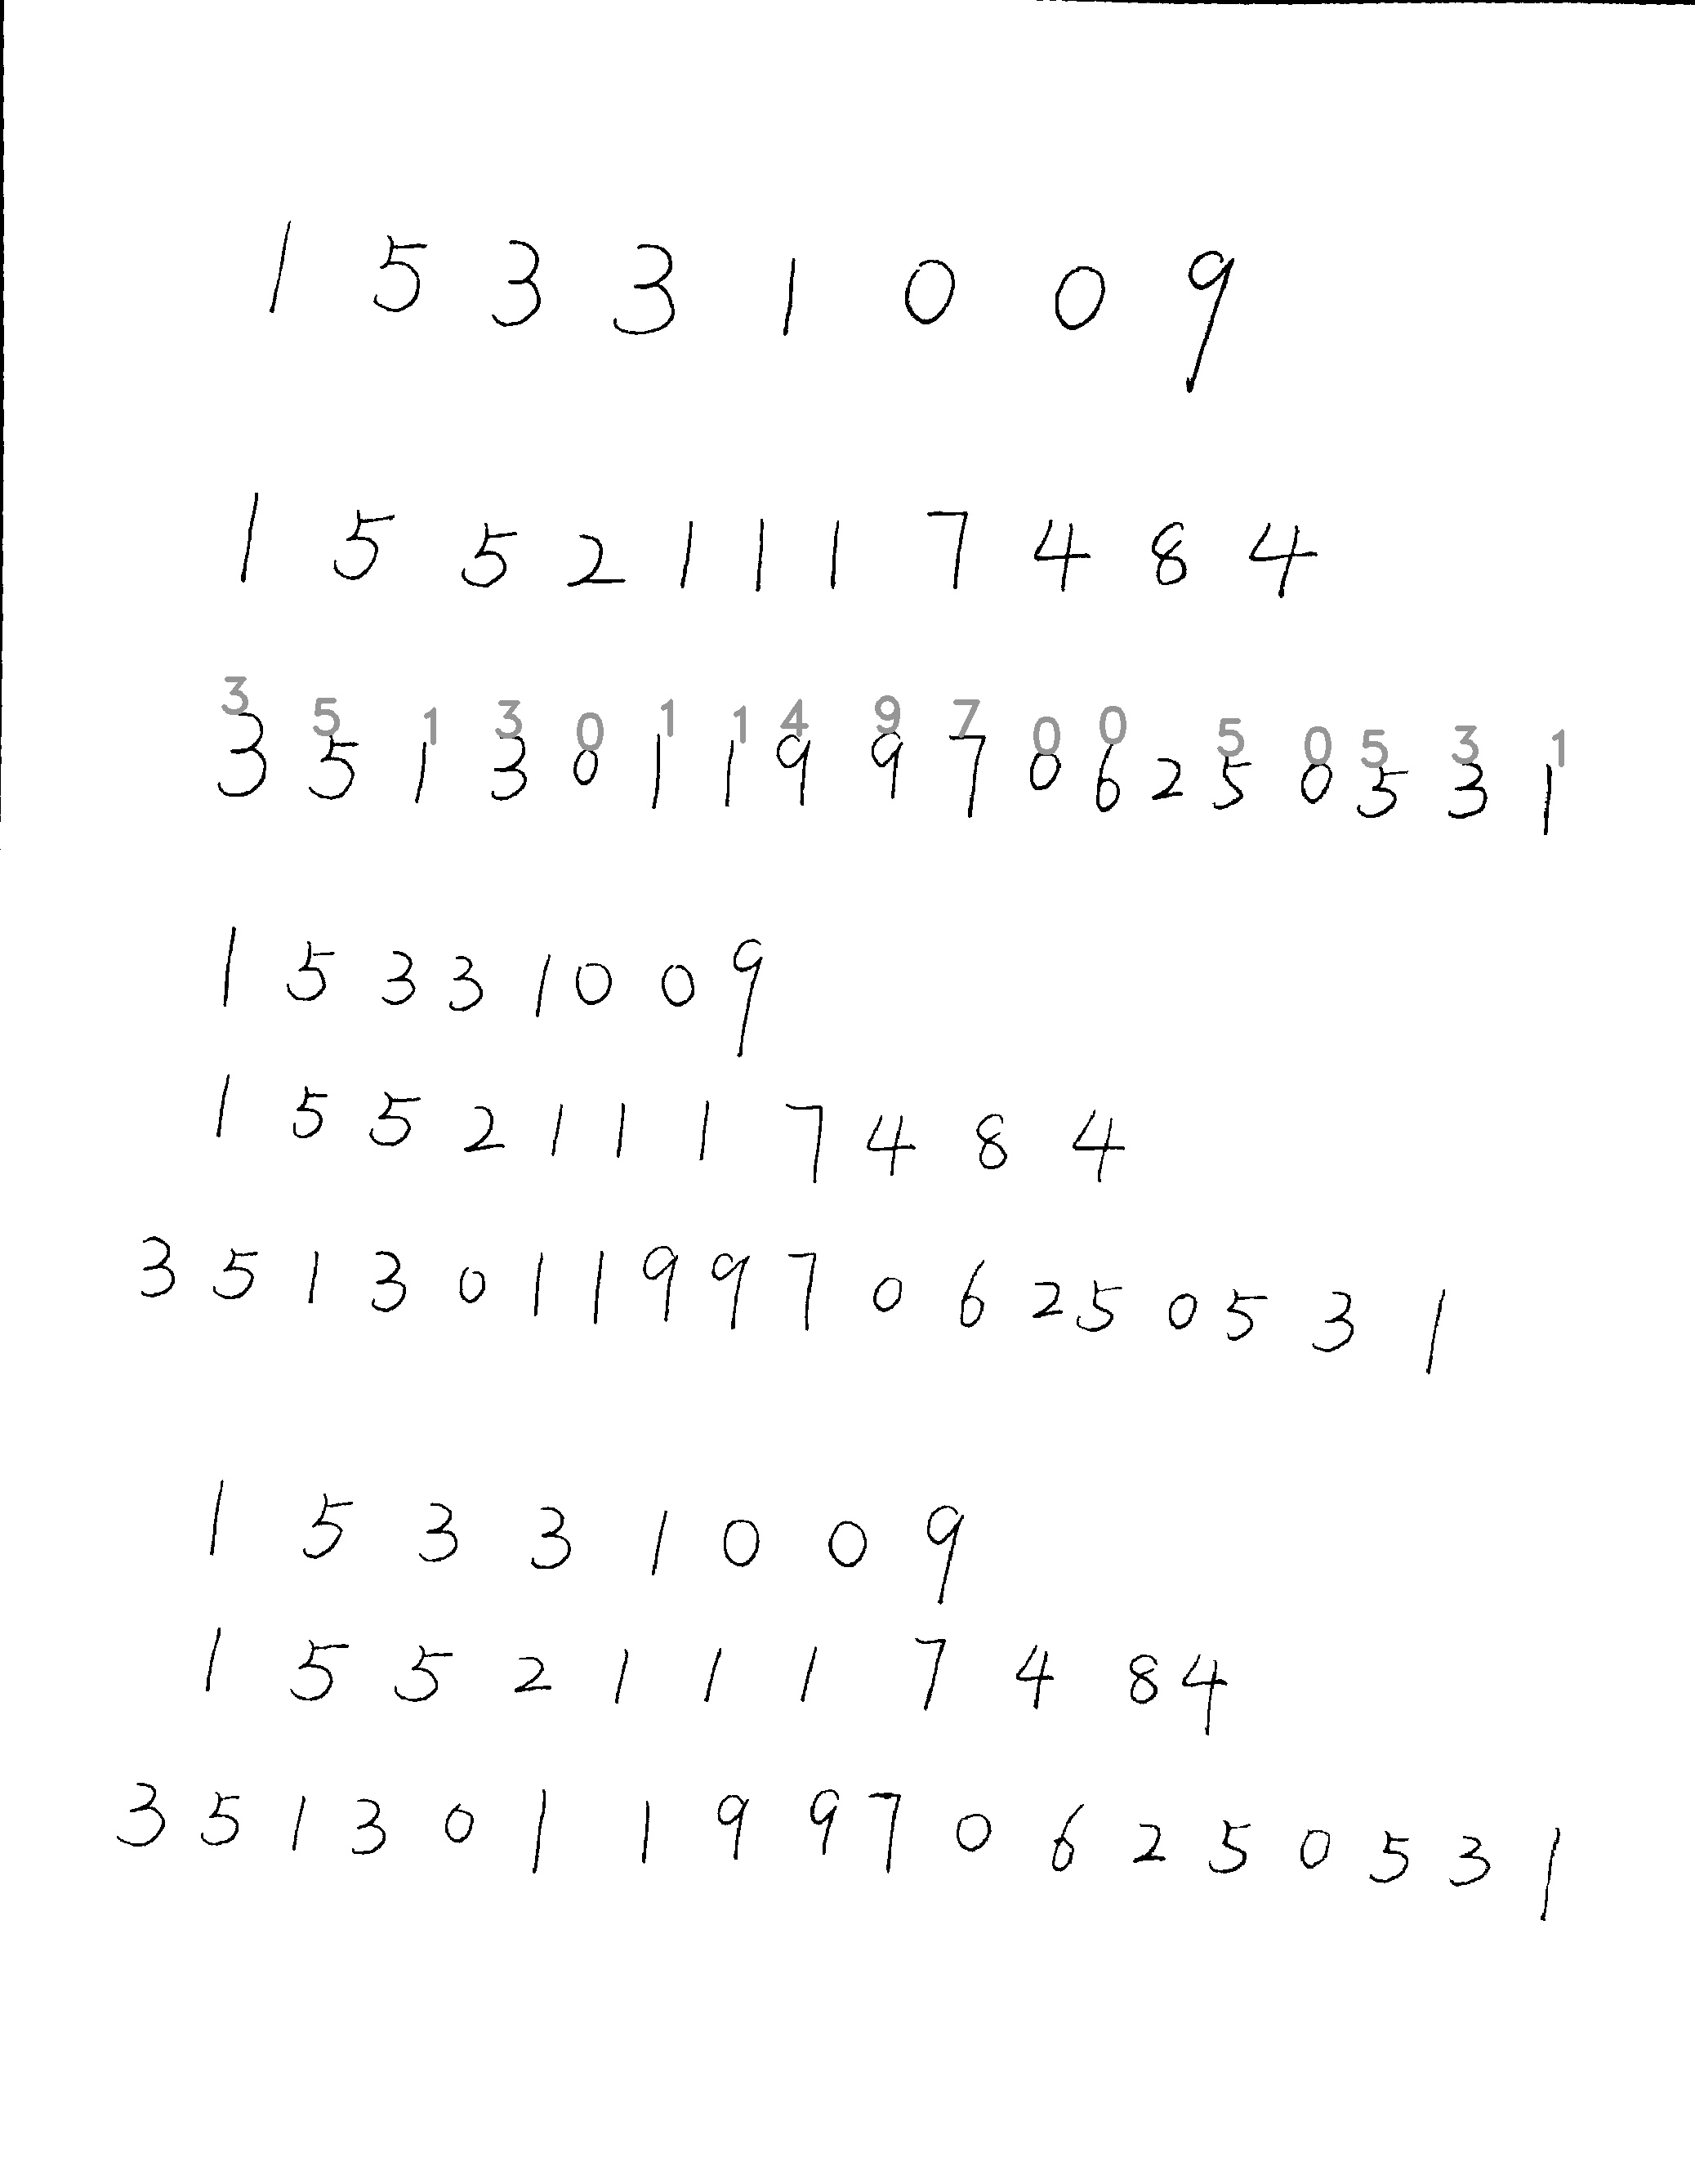 1 5 3 3 1 0 0 9
1 5 5 2 1 1 1 7 4 8 4
3 5 1 3 0 1 1 4 9 7 0 0 5 0 5 3 1
3 5 1 3 0 1 1 9 9 7 0 6 2 5 0 5 3 1
1 5 3 3 1 0 0 9
1 5 5 2 1 1 1 7 4 8 4
3 5 1 3 0 1 1 9 9 7 0 6 2 5 0 5 3 1
1 5 3 3 1 0 0 9
1 5 5 2 1 1 1 7 4 8 4
3 5 1 3 0 1 1 9 9 7 0 6 2 5 0 5 3 1